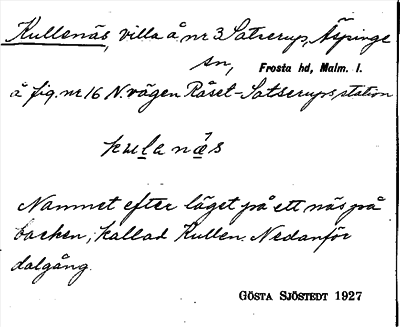 Kullenäs, villa å nr 3 Satserup, Äspinge
sn, Frosta hd, Malm. l.
å fig. nr 16 N. vägen Råset-Satserups station
kulanä́s
Namnet efter läget på ett näs på
backen, kallad Kullen. Nedanför
dalgång.
GÖSTA SJÖSTEDT 1927